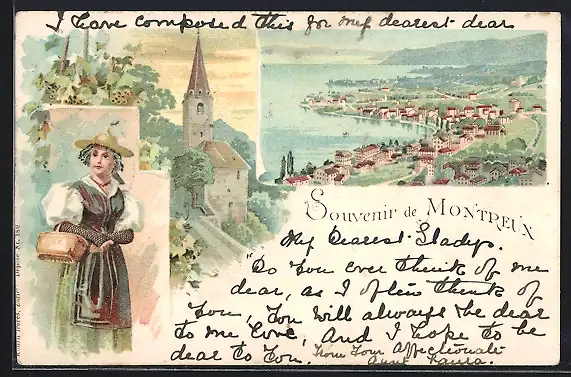 I have composed this for my dearest dear
Souvenir de MONTREUX
My Dearest Gladys.
"Do You ever think of me
dear, as I often think of
You, You will always be dear
to me love, And I hope to be
dear to You.
From Your Affectionate
Aunt Laura.